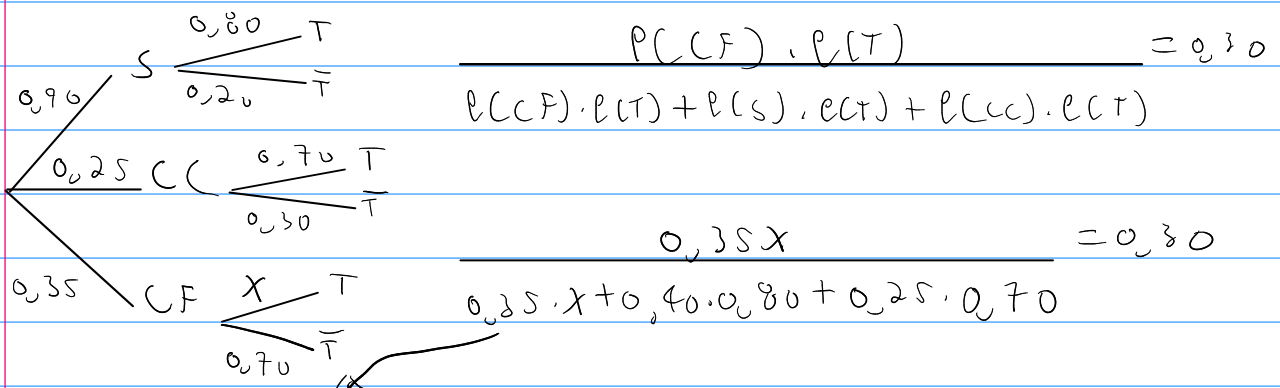 0,40
S
0,80
T
0,20
T̄
0,25
CC
0,70
T
0,30
T̄
0,35
CF
X
T
0,70
T̄
P(CF).P(T)
= 0,30
P(CF).P(T)+P(S).P(T)+P(CC).P(T)
0,35X
=0,30
0,35.X+0,40.0,80+0,25.0,70